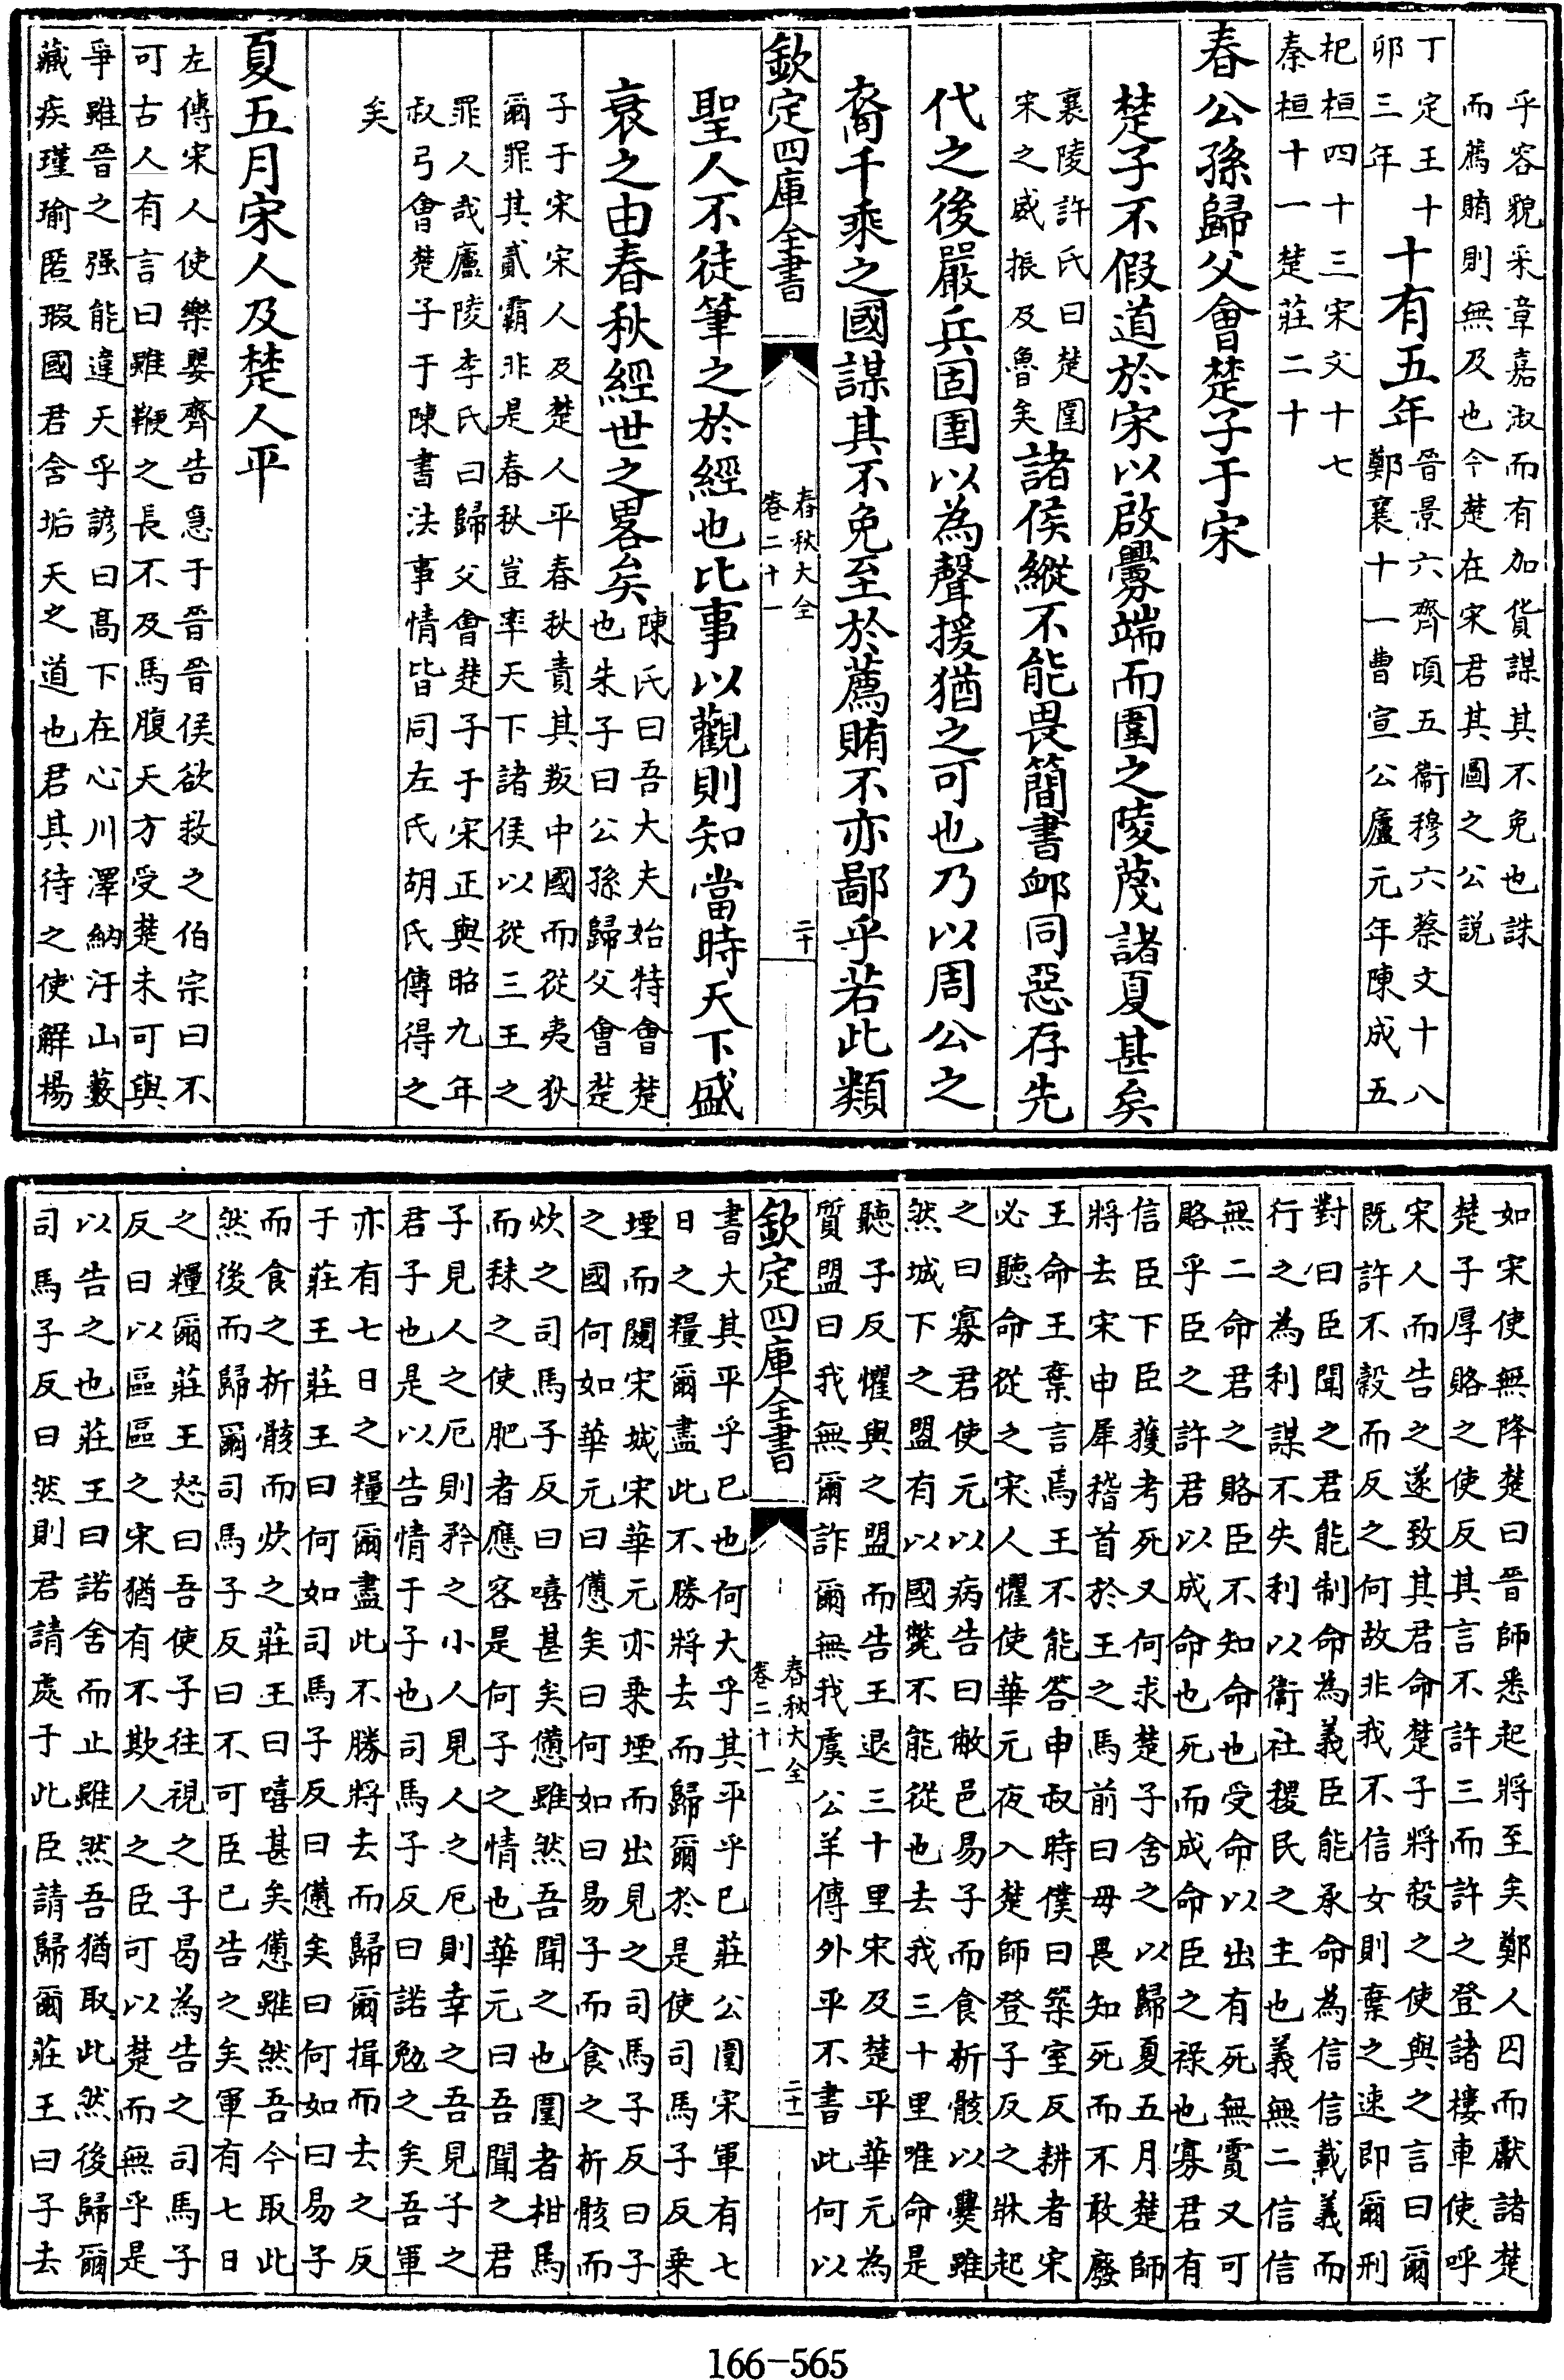 乎容貌采章嘉淑而有加貨謀其不免也誅
而薦賄則無及也今楚在宋君其圖之公説
丁定王十
卯三年
十有五年
晉景六齊頃五衞穆六蔡文十八
鄭襄十一曹宣公廬元年陳成五
杞桓四十三宋文十七
秦桓十一楚莊二十
春公孫歸父會楚子于宋
楚子不假道於宋以啟釁端而圍之陵蔑諸夏甚矣
襄陵許氏曰楚圍
宋之威振及魯矣
諸侯縱不能畏簡書䘏同惡存先
代之後嚴兵固圉以為聲援猶之可也乃以周公之
裔千乘之國謀其不免至於薦賄不亦鄙乎若此類
欽定四庫全書
春秋大全
卷二十一
二十
聖人不徒筆之於經也比事以觀則知當時天下盛
衰之由春秋經世之畧矣
陳氏曰吾大夫始特會楚
也朱子曰公孫歸父會楚
子于宋宋人及楚人平春秋責其叛中國而從夷狄
爾罪其貳霸非是春秋豈率天下諸侯以從三王之
罪人哉廬陵李氏曰歸父會楚子于宋正與昭九年
叔弓會楚子于陳書法事情皆同左氏胡氏傳得之
矣
夏五月宋人及楚人平
左傳宋人使樂嬰齊告急于晉晉侯欲救之伯宗曰不
可古人有言曰雖鞭之長不及馬腹天方受楚未可與
爭雖晉之强能違天乎諺曰高下在心川澤納汙山藪
藏疾瑾瑜匿瑕國君含垢天之道也君其待之使解楊
如宋使無降楚曰晉師悉起將至矣鄭人囚而獻諸楚
楚子厚賂之使反其言不許三而許之登諸樓車使呼
宋人而告之遂致其君命楚子將殺之使與之言曰爾
既許不榖而反之何故非我不信女則棄之速即爾刑
對曰臣聞之君能制命為義臣能承命為信信載義而
行之為利謀不失利以衞社稷民之主也義無二信信
無二命君之賂臣不知命也受命以出有死無霣又可
賂乎臣之許君以成命也死而成命臣之祿也寡君有
信臣下臣獲考死又何求楚子舍之以歸夏五月楚師
將去宋申犀稽首於王之馬前曰毋畏知死而不敢廢
王命王棄言焉王不能答申叔時僕曰築室反耕者宋
必聽命從之宋人懼使華元夜入楚師登子反之牀起
之曰寡君使元以病告曰敝邑易子而食析骸以爨雖
然城下之盟有以國斃不能從也去我三十里唯命是
聽子反懼與之盟而告王退三十里宋及楚平華元為
質盟曰我無爾詐爾無我虞公羊傳外平不書此何以
欽定四庫全書
春秋大全
卷二十一
二十一
書大其平乎已也何大乎其平乎已莊公圍宋軍有七
日之糧爾盡此不勝將去而歸爾於是使司馬子反乘
堙而闚宋城宋華元亦乘堙而出見之司馬子反曰子
之國何如華元曰憊矣曰何如曰易子而食之析骸而
炊之司馬子反曰嘻甚矣憊雖然吾聞之也圍者柑馬
而秣之使肥者應客是何子之情也華元曰吾聞之君
子見人之厄則矜之小人見人之厄則幸之吾見子之
君子也是以告情于子也司馬子反曰諾勉之矣吾軍
亦有七日之糧爾盡此不勝將去而歸爾揖而去之反
于莊王莊王曰何如司馬子反曰憊矣曰何如曰易子
而食之析骸而炊之莊王曰嘻甚矣憊雖然吾今取此
然後而歸爾司馬子反曰不可臣已告之矣軍有七日
之糧爾莊王怒曰吾使子往視之子曷為告之司馬子
反曰以區區之宋猶有不欺人之臣可以楚而無乎是
以告之也莊王曰諾舍而止雖然吾猶取此然後歸爾
司馬子反曰然則君請處于此臣請歸爾莊王曰子去
166-565